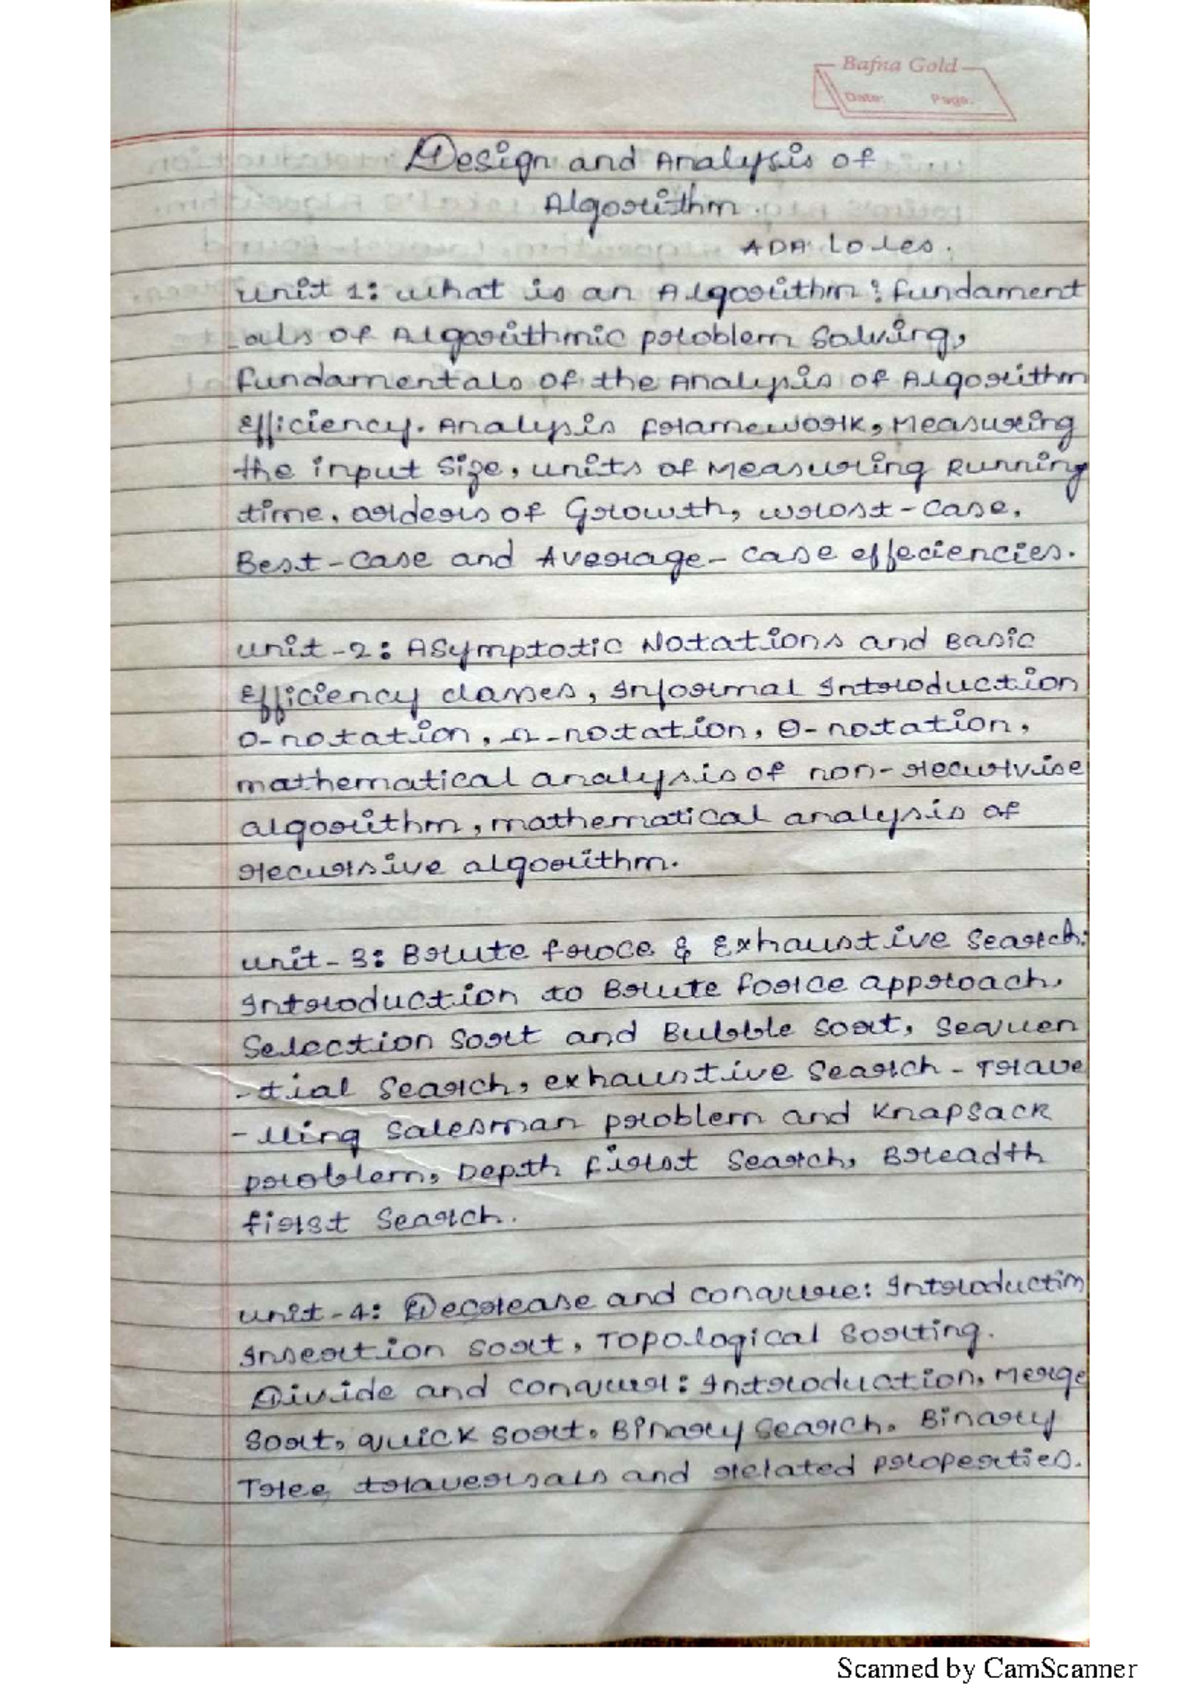 Bafna Gold
Date: Page:
Design and Analysis of
Algorithm.
ADA:
Unit 1: What is an Algorithm: fundament
als of Algorithmic problem Solving,
fundamentals of the Analysis of Algorithm
Efficiency. Analysis framework, Measuring
the input Size, units of Measuring Running
time. orders of Growth, wrost-case.
Best-case and Average-case effeciencies.
unit-2: ASymptotic Notations and Basic
Efficiency classes, Informal Introduction
O-notation, Ω-notation, θ-notation,
mathematical analysis of non-recurvise
algorithm, mathematical analysis of
recursive algorithm.
unit-3: Brute froce & Exhaustive Search:
Introduction to Brute force approach,
Selection Sort and Bubble sort, Sequen
-tial Search, exhaustive Search - Trave
-lling Salesman problem and Knapsack
problem, Depth first Search, Breadth
first Search.
unit-4: Decrease and conqure: Introduction
Insertion sort, Topological Sorting.
Divide and conqure: Introduction, Merge
Sort, quick sort, Binary Search, Binary
Tree, traversals and related properties.
Scanned by CamScanner